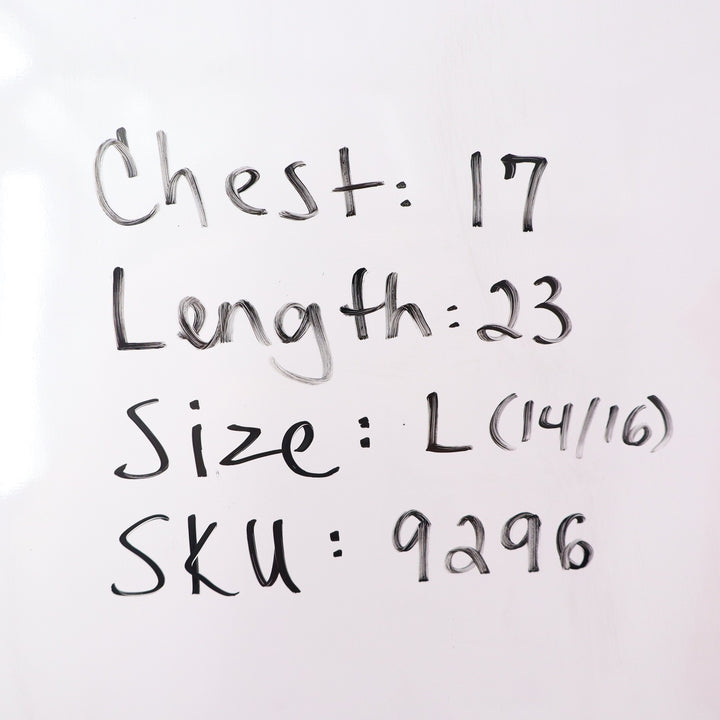 Chest: 17
Length: 23
Size: L (14/16)
SKU: 9296